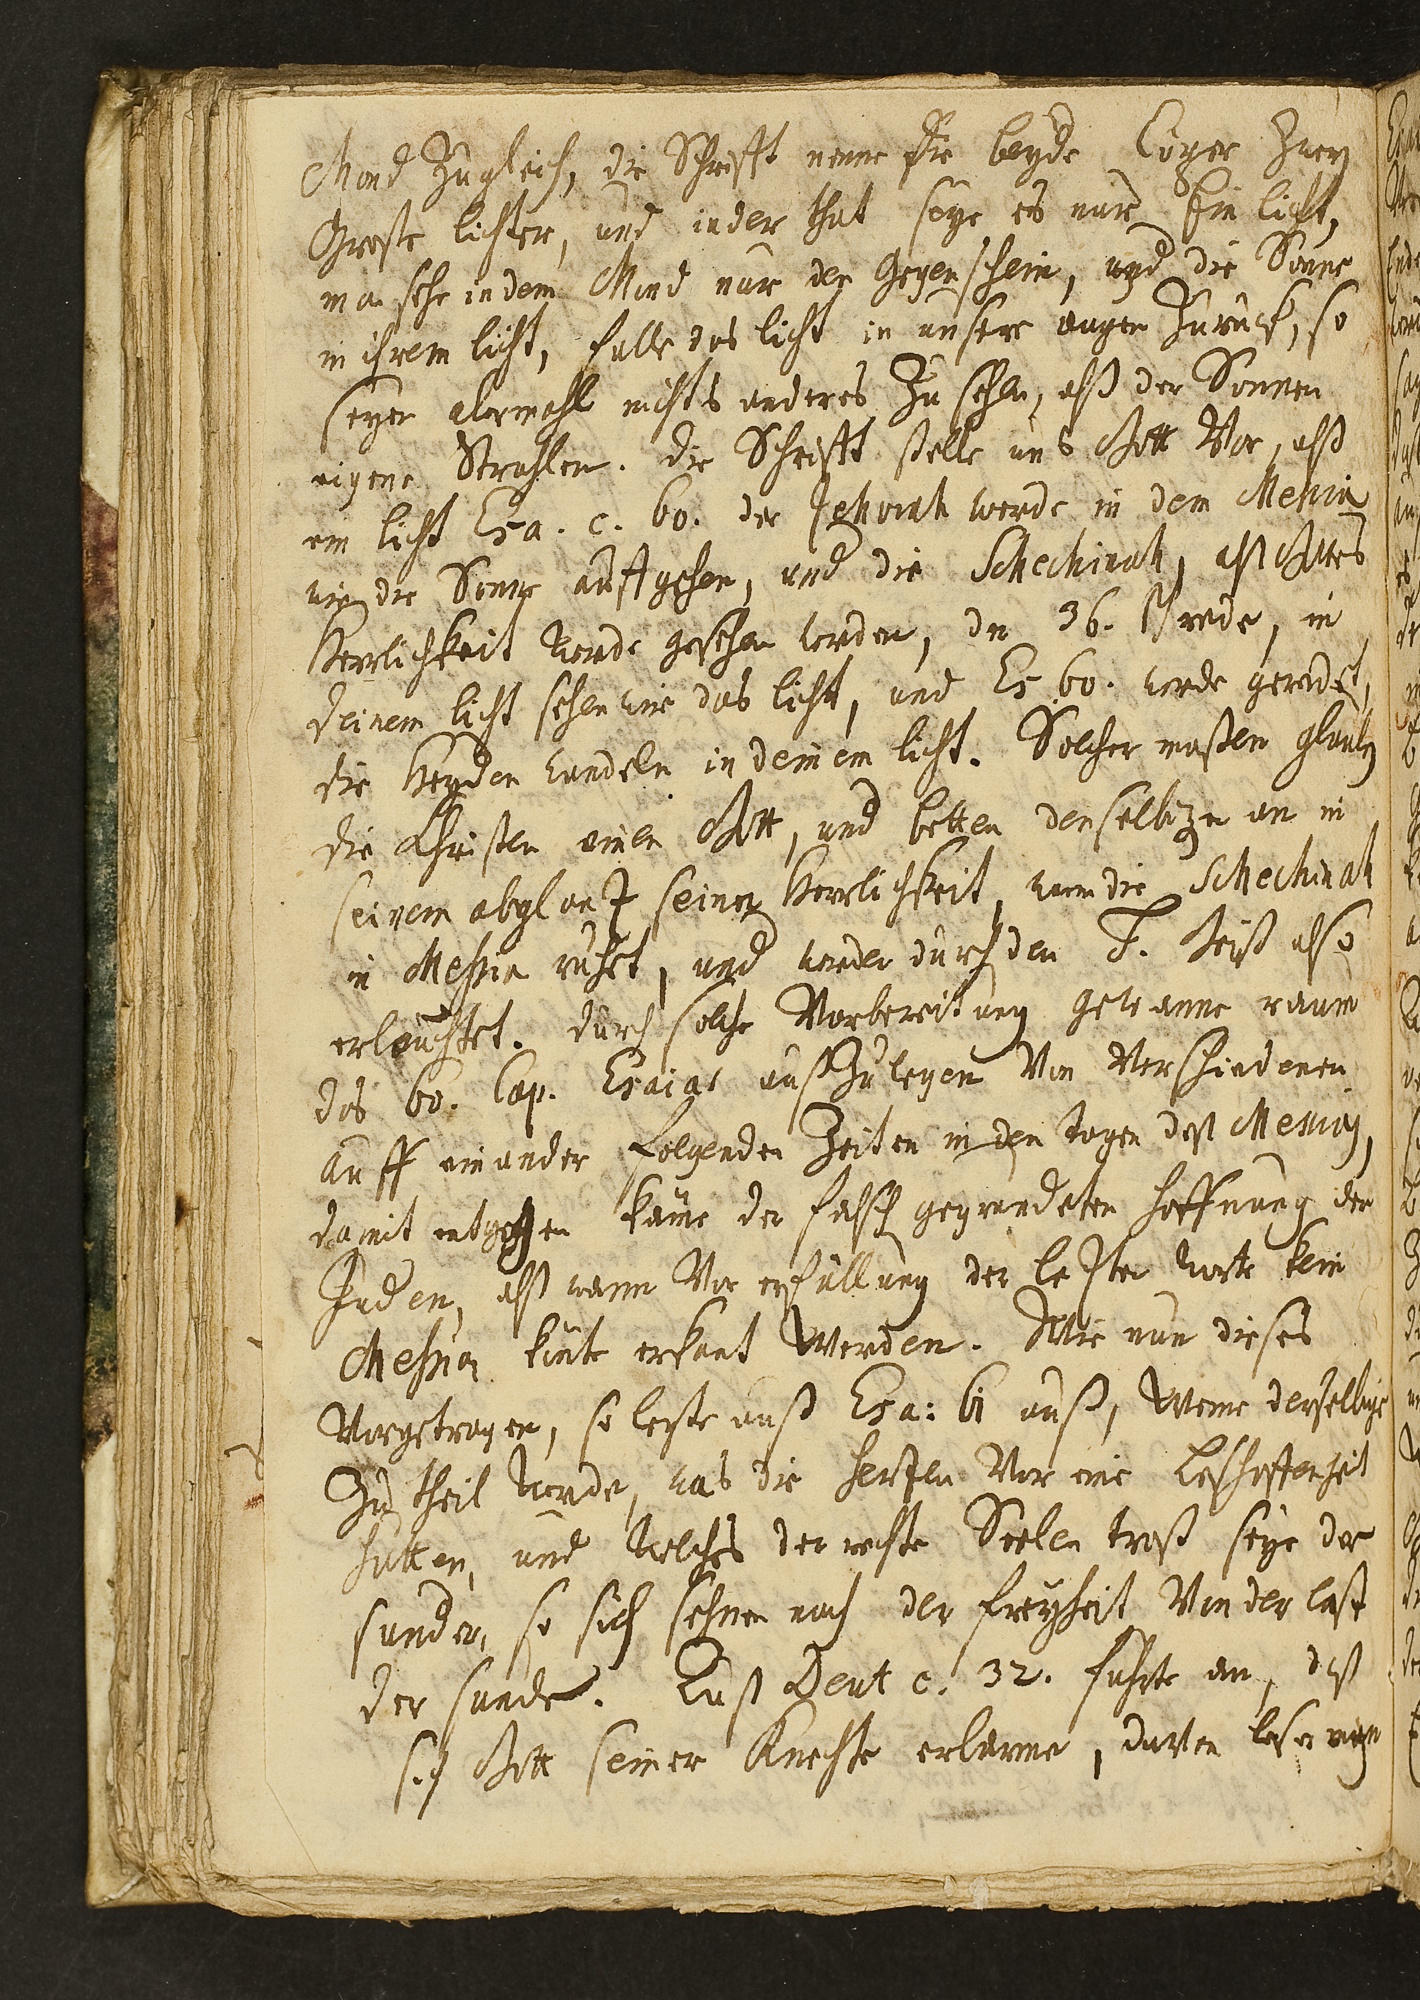 Mond Zugleich, die Schrifft nenne sie beyde Cörper Zwey
Groste lichter, und in der that seye es nur Ein licht,
man sehe in dem Mond nur den Gegenschein, und die Sonne
in ihrem licht, falle das licht in unsere augen Zuruck, so
seyen alermahl nichts anderes Zu sehen, alß der Sonnen
eigene Strahlen. die Schrifft stelle uns Gott Vor, alß
ein licht Esa. c. 60. der Jehovah werde in dem Messia
wie die Sonne auffgehen, und die Schechinah, alß Gottes
Herrlichkeit werde gesehen werden, der 36. Ps rede, in
deinem licht sehen wir das licht, und Es. 60. werde geredet,
die Heyden wandeln in deinem licht. Solcher maßen glauben
die Christen einen Gott, und betten denselbigen an in
seinem abglantz seiner Herrlichkeit, wann die Schechinah
in Messia ruhet, und werden durch den H. Geist also
erleuchtet. durch solche Vorbereitung gewanne raum
das 60. Cap. Esaias außZulegen Von Verschiedenen
auff einander folgenden Zeiten in den tagen deß Messiæ,
damit entgegen käme der falsch gegrundeten hoffnung der
Juden, alß wann Vor erfüllung der letzten worte kein
Messias könte erkant werden. Wie nun dieses
Vorgetragen, so legte auß Esa: 61 auß, wenne derselbige
Zu theil werde, was die herzen Vor eine beschaffenheit
hätten, und welches der rechte Seelen trost seye der
sunder, so sich sehnen nach der freyheit Von der last
der sunde. Auß Deut c. 32. fuhrte an, daß
sich Gott seiner Knechte erbarme, davon lese man